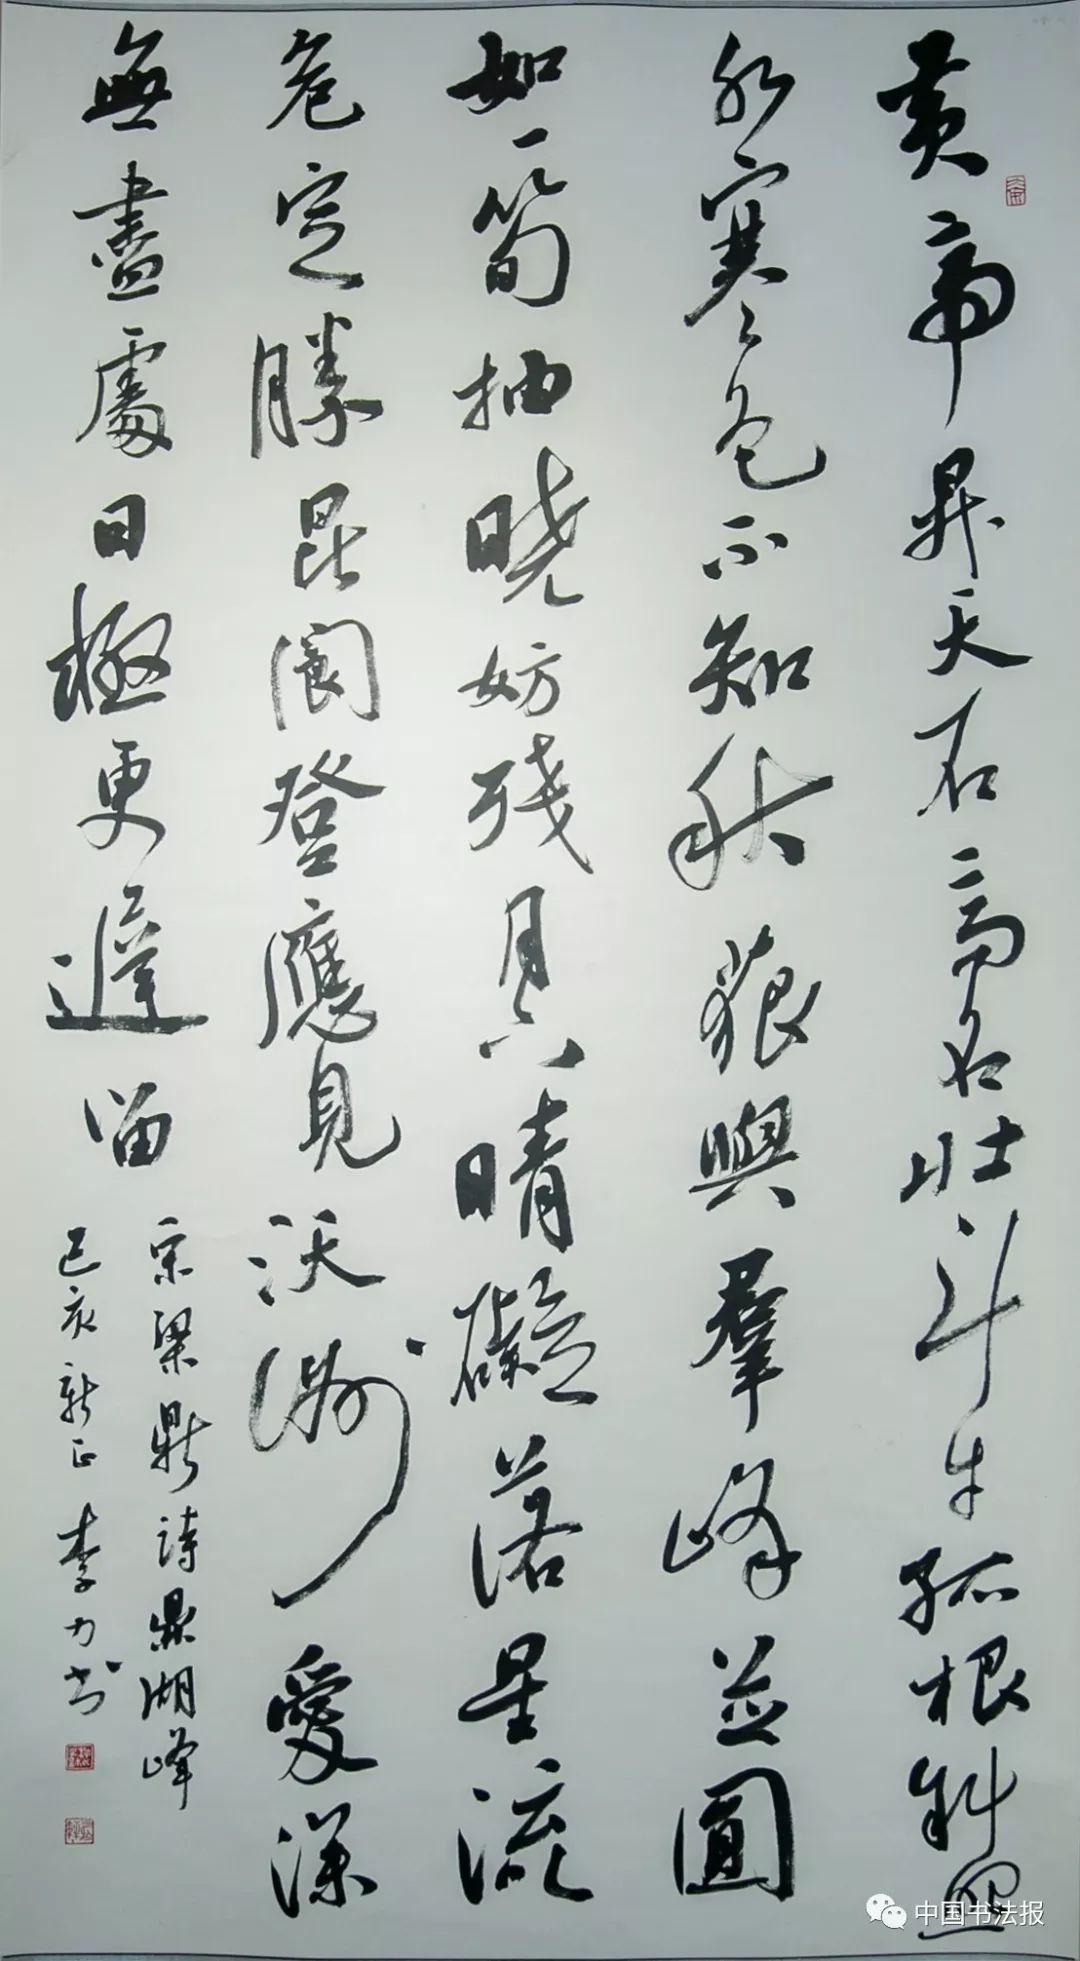 黄帝昇天石高名壮斗牛孤根斜照
水寒色不知秋狠與羣峰並圓
如一筍抽曉妨殘月晴礙落星流
危定勝昆閬登應見沃洲愛深
無盡處日極更遲留
宋梁鼎詩鼎湖峰
己亥新正李力书
中国书法报